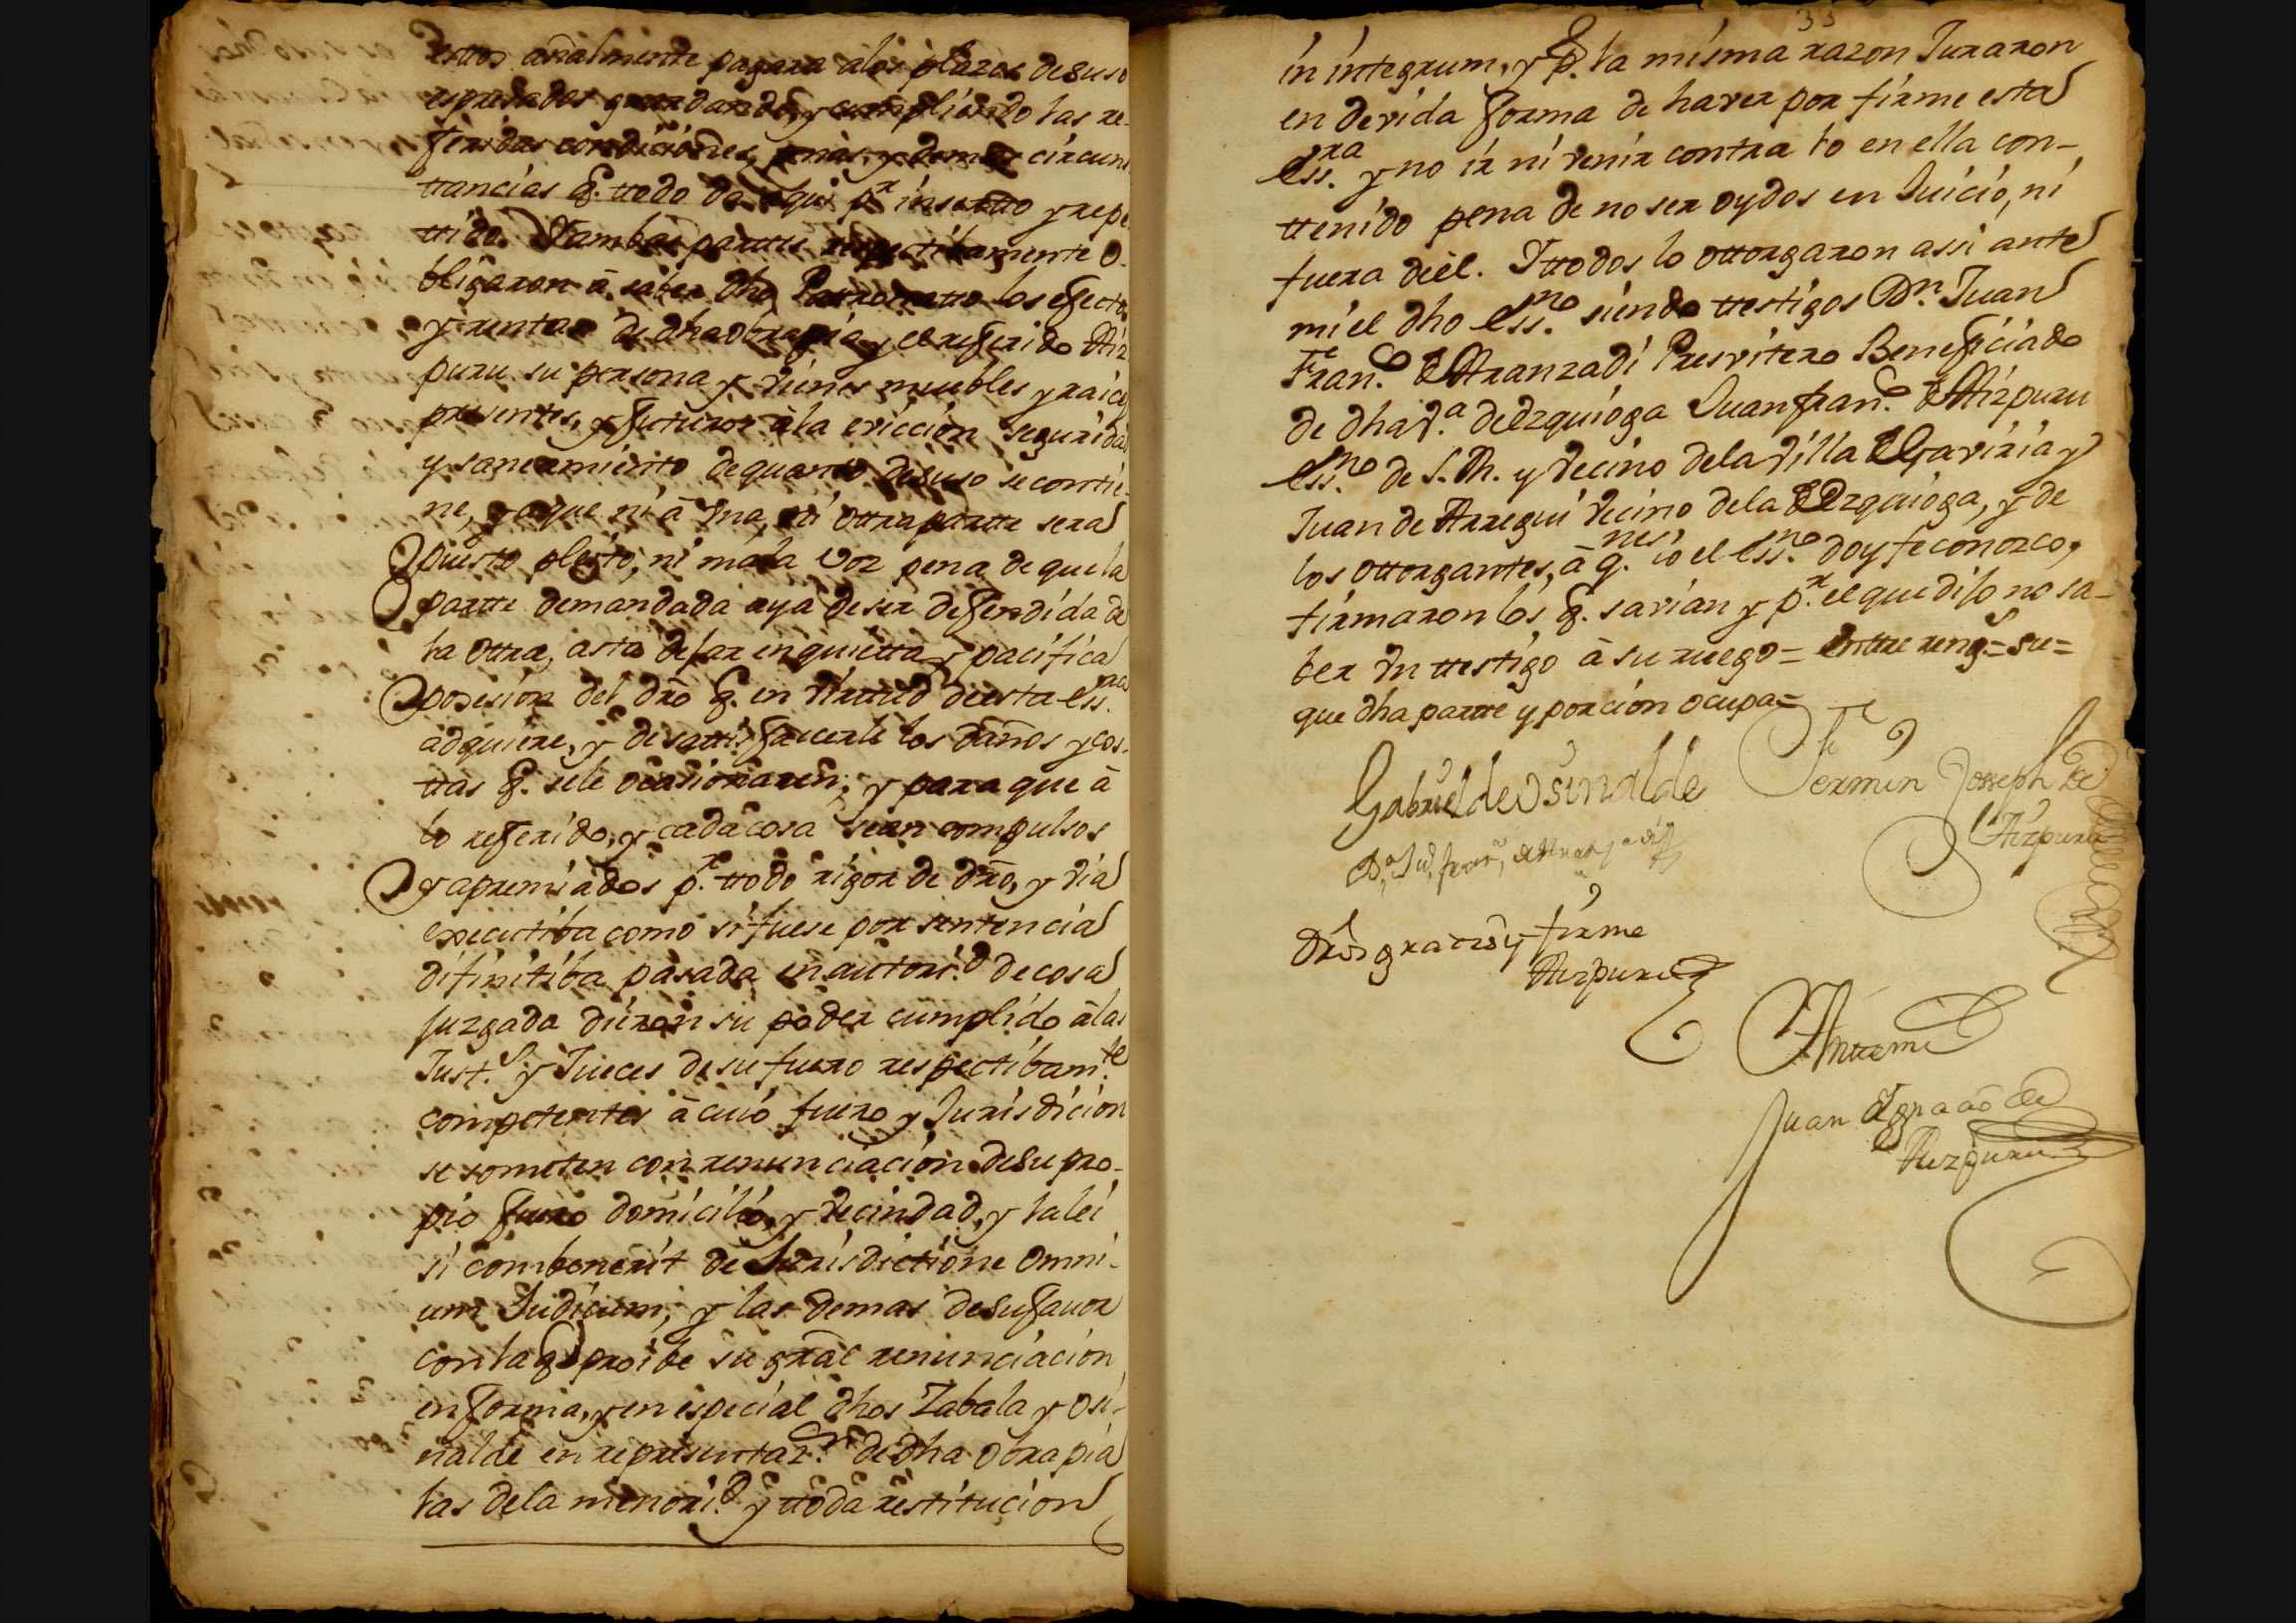 ettos añalmente pagara alos plazos desuso
espresados guardando, y cumpliendo las re-
feridas condiciones, penas, y demas circuns
ttancias q. ttodo da aqui p.r insertto y repe
ttido. Y ambas parttes respectibamente o-
bligaron â saver dho Patronatto los efectos
y rentas de dha obrapia y el referido Aiz
puru su persona y vienes muebles y raices
presentes, y futuros âla evicción seguridad
y saneamiento de quanto desuso se contie-
ne, y aque ni â Una, ni ottra partte sera
puesto pleito, ni mala voz pena de que la
partte demandada aya de ser defendida de
la ottra, asta dejar en quietta y pacifica
posesion del dro q. en virttud deesta ess.ra
adquiere, y de sattisfacerle los daños y cos-
ttas q. sele ocasionaren; y para que â
lo referido, y cada cosa sean compulsos
y apremiados p.r ttodo rigor de dro, y via
executiba como si fuese por sentencia
difinitiba pasada en autori.d de cosa
juzgada dieron su poder cumplido âlas
Just.s y Jueces de su fuero respectibam.te
competentes â cuio fuero y Jurisdicion
se someten con renunciacion de su pro-
pio fuero domicilio, y vecindad, y la lei
si combenerit de Jurisdictione omni-
um Judicum; y las demas de su favor
con la q. proibe su gral renunciacion
en forma, y en especial dhos Zabala y Osi-
nalde en representaz.on de dha obra pia
las dela menori.d y ttoda restitucion
33
in integrum, y p.r la misma razon Juraron
en devida forma de haver por firme esta
ess.ra y no ir ni venir contra lo en ella con-
ttenido pena de no ser oydos en Juicio, ni
fuera deel. Y ttodos lo ottorgaron assi ante
mi el dho ess.no siendo ttestigos Dn. Juan
Fran.co de Aranzadi Presvitero Beneficiado
de dha v.a de Ezquioga Juan fran.co de Aizpuru
ess.no de S.M. y vecino dela villa de Gaviria y
Juan de Arregui vecino dela de Ezquioga, y de
los ottorgantes, â q.nes io el ess.no doy fe conozco,
firmaron los q. savian y p.r el que dijo no sa-
ber Un ttestigo â su ruego = enttre reng.s = su =
que dha partte y porcion ocupa =
Gabriel de Osinalde
Fermin Joseph de
Aizpuru
Dn. Ju. fran.co de Aranzadi
Dros gratis y firme
Aizpuru
Antemi
Juan Ygnacio de
Aizpuru